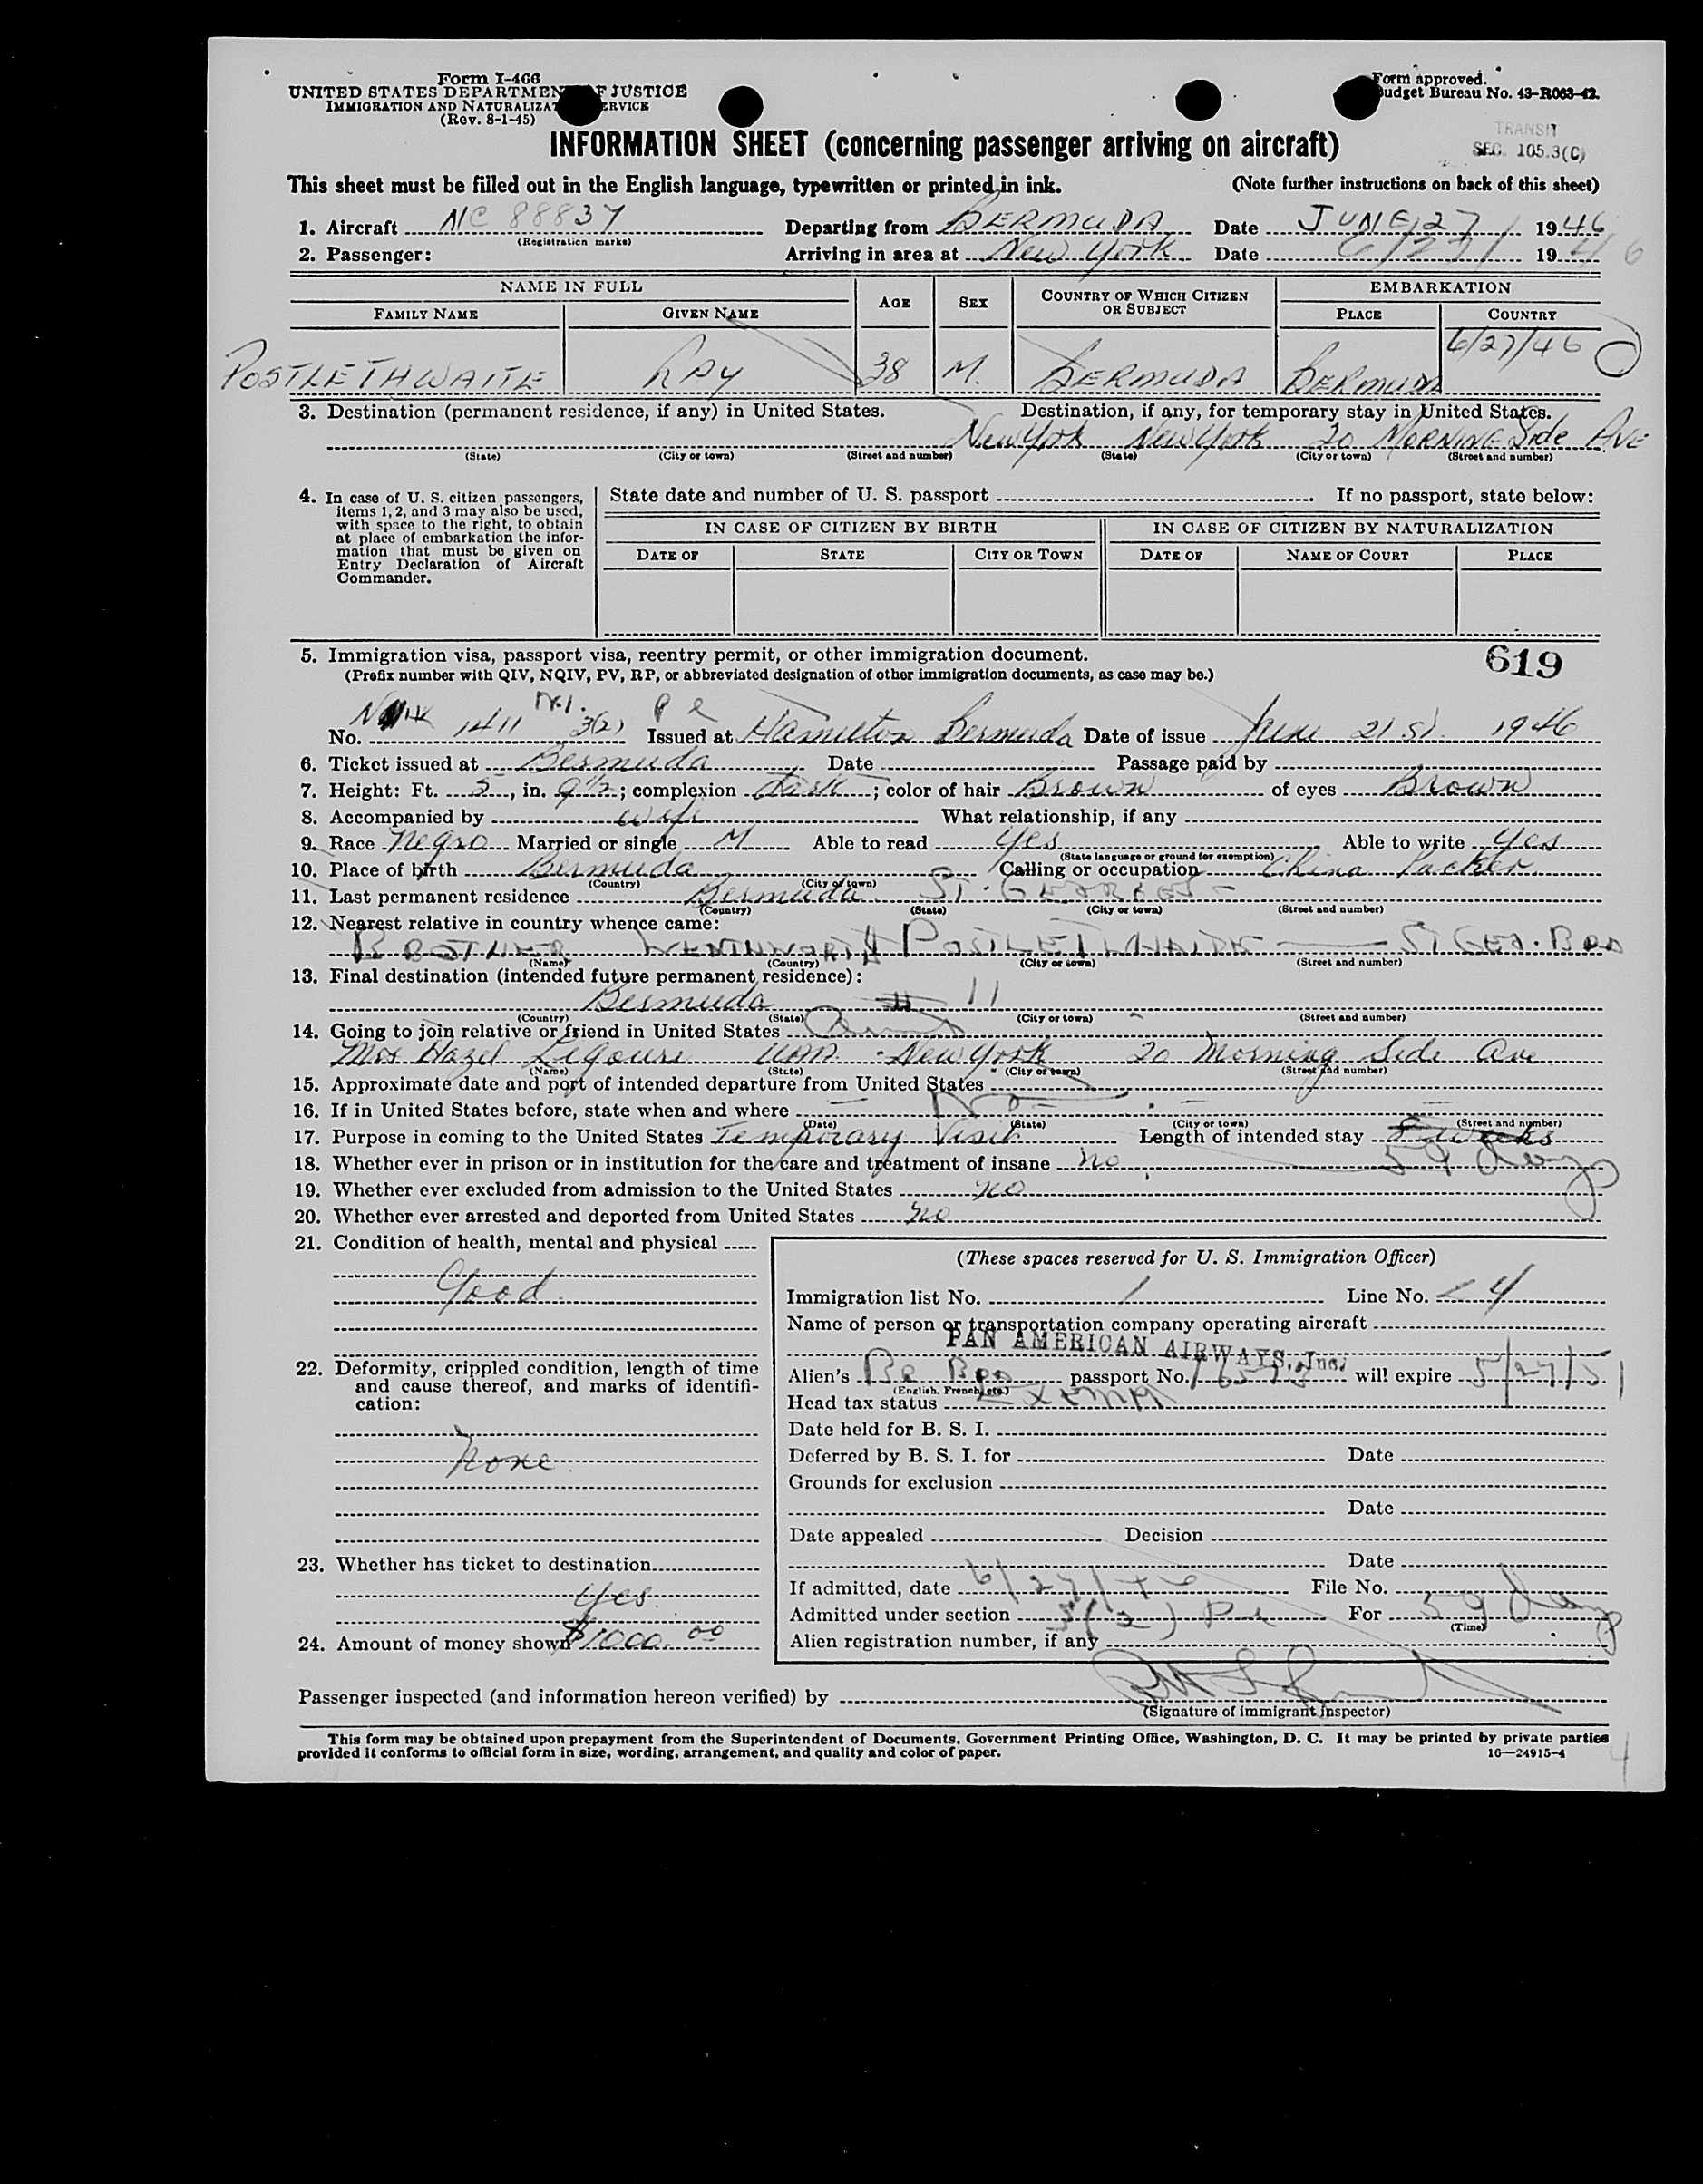 Form I-466
UNITED STATES DEPARTMENT OF JUSTICE
IMMIGRATION AND NATURALIZATION SERVICE
(Rev. 8-1-45)
Form approved.
Budget Bureau No. 43-R063-42.
TRANSIT
SEC. 105.3(C)
INFORMATION SHEET (concerning passenger arriving on aircraft)
This sheet must be filled out in the English language, typewritten or printed in ink. (Note further instructions on back of this sheet)
1. Aircraft NC 88837 Departing from BERMUDA Date JUNE 27 1946
(Registration marks)
2. Passenger: Arriving in area at New York Date 6/27/ 1946
NAME IN FULL AGE SEX COUNTRY OF WHICH CITIZEN OR SUBJECT EMBARKATION
FAMILY NAME GIVEN NAME PLACE COUNTRY
6/27/46
POSTLETHWAITE RAY 38 M. BERMUDA BERMUDA
3. Destination (permanent residence, if any) in United States. Destination, if any, for temporary stay in United States.
New York New York 20 MORNING Side AVE
(State) (City or town) (Street and number) (State) (City or town) (Street and number)
4. In case of U. S. citizen passengers, items 1, 2, and 3 may also be used, with space to the right, to obtain at place of embarkation the information that must be given on Entry Declaration of Aircraft Commander.
State date and number of U. S. passport If no passport, state below:
IN CASE OF CITIZEN BY BIRTH IN CASE OF CITIZEN BY NATURALIZATION
DATE OF STATE CITY OR TOWN DATE OF NAME OF COURT PLACE
5. Immigration visa, passport visa, reentry permit, or other immigration document. 619
(Prefix number with QIV, NQIV, PV, RP, or abbreviated designation of other immigration documents, as case may be.)
No. 1411 3(2) Issued at Hamilton Bermuda Date of issue June 21 st. 1946
6. Ticket issued at Bermuda Date Passage paid by
7. Height: Ft. 5, in. 9 1/2; complexion dark; color of hair Brown of eyes Brown
8. Accompanied by wife What relationship, if any
9. Race Negro Married or single M Able to read Yes Able to write Yes
(State language or ground for exemption)
10. Place of birth Bermuda Calling or occupation China Packer
(Country) (City or town)
11. Last permanent residence Bermuda ST. GEORGES
(Country) (State) (City or town) (Street and number)
12. Nearest relative in country whence came:
BROTHER WENTWORTH POSTLETHWAITE ST GEO. BDA
(Name) (Country) (City or town) (Street and number)
13. Final destination (intended future permanent residence):
Bermuda
(Country) (State) (City or town) (Street and number)
14. Going to join relative or friend in United States
Mrs Hazel New York 20 Morning Side Ave
(Name) (State) (City or town) (Street and number)
15. Approximate date and port of intended departure from United States
16. If in United States before, state when and where No
(Date) (State) (City or town) (Street and number)
17. Purpose in coming to the United States Temporary Visit Length of intended stay
18. Whether ever in prison or in institution for the care and treatment of insane no 59 days
19. Whether ever excluded from admission to the United States no
20. Whether ever arrested and deported from United States no
21. Condition of health, mental and physical
Good
22. Deformity, crippled condition, length of time and cause thereof, and marks of identification:
None
23. Whether has ticket to destination
Yes
24. Amount of money shown $1000.00
(These spaces reserved for U. S. Immigration Officer)
Immigration list No. 1 Line No. 4
Name of person or transportation company operating aircraft
PAN AMERICAN AIRWAYS, Inc.
Alien's Br Bda passport No. will expire 5/27/51
(English, French, etc.)
Head tax status Exempt
Date held for B. S. I.
Deferred by B. S. I. for Date
Grounds for exclusion
Date
Date appealed Decision
Date
If admitted, date 6/27/46 File No.
Admitted under section 3(2) For 59 days
(Time)
Alien registration number, if any
Passenger inspected (and information hereon verified) by
(Signature of immigrant inspector)
This form may be obtained upon prepayment from the Superintendent of Documents, Government Printing Office, Washington, D. C. It may be printed by private parties
provided it conforms to official form in size, wording, arrangement, and quality and color of paper. 16—24915-4